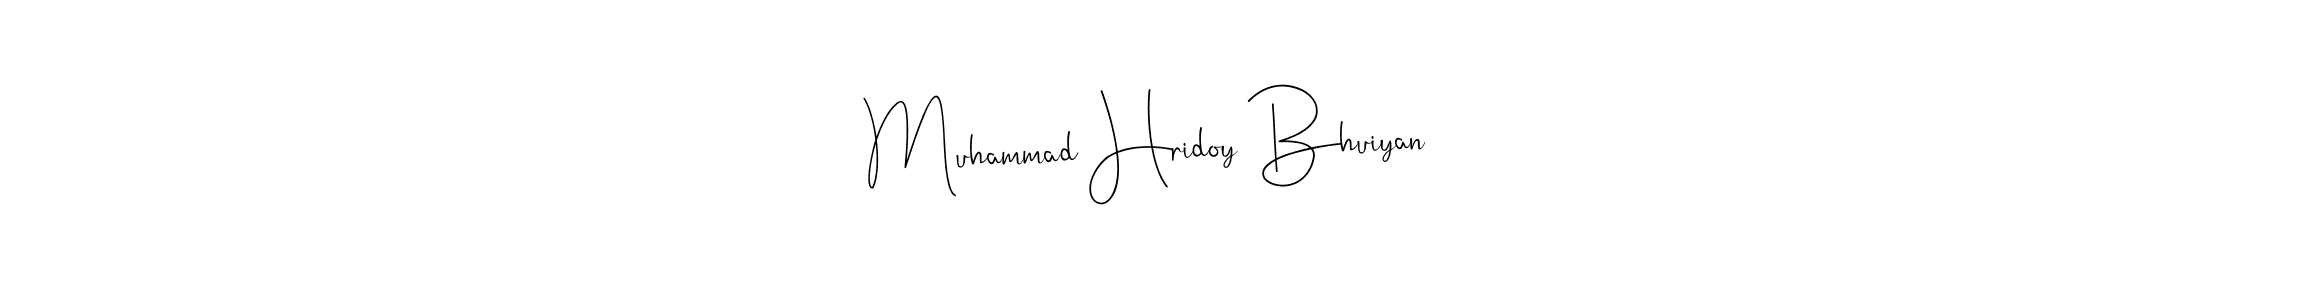 Muhammad Hridoy Bhuiyan